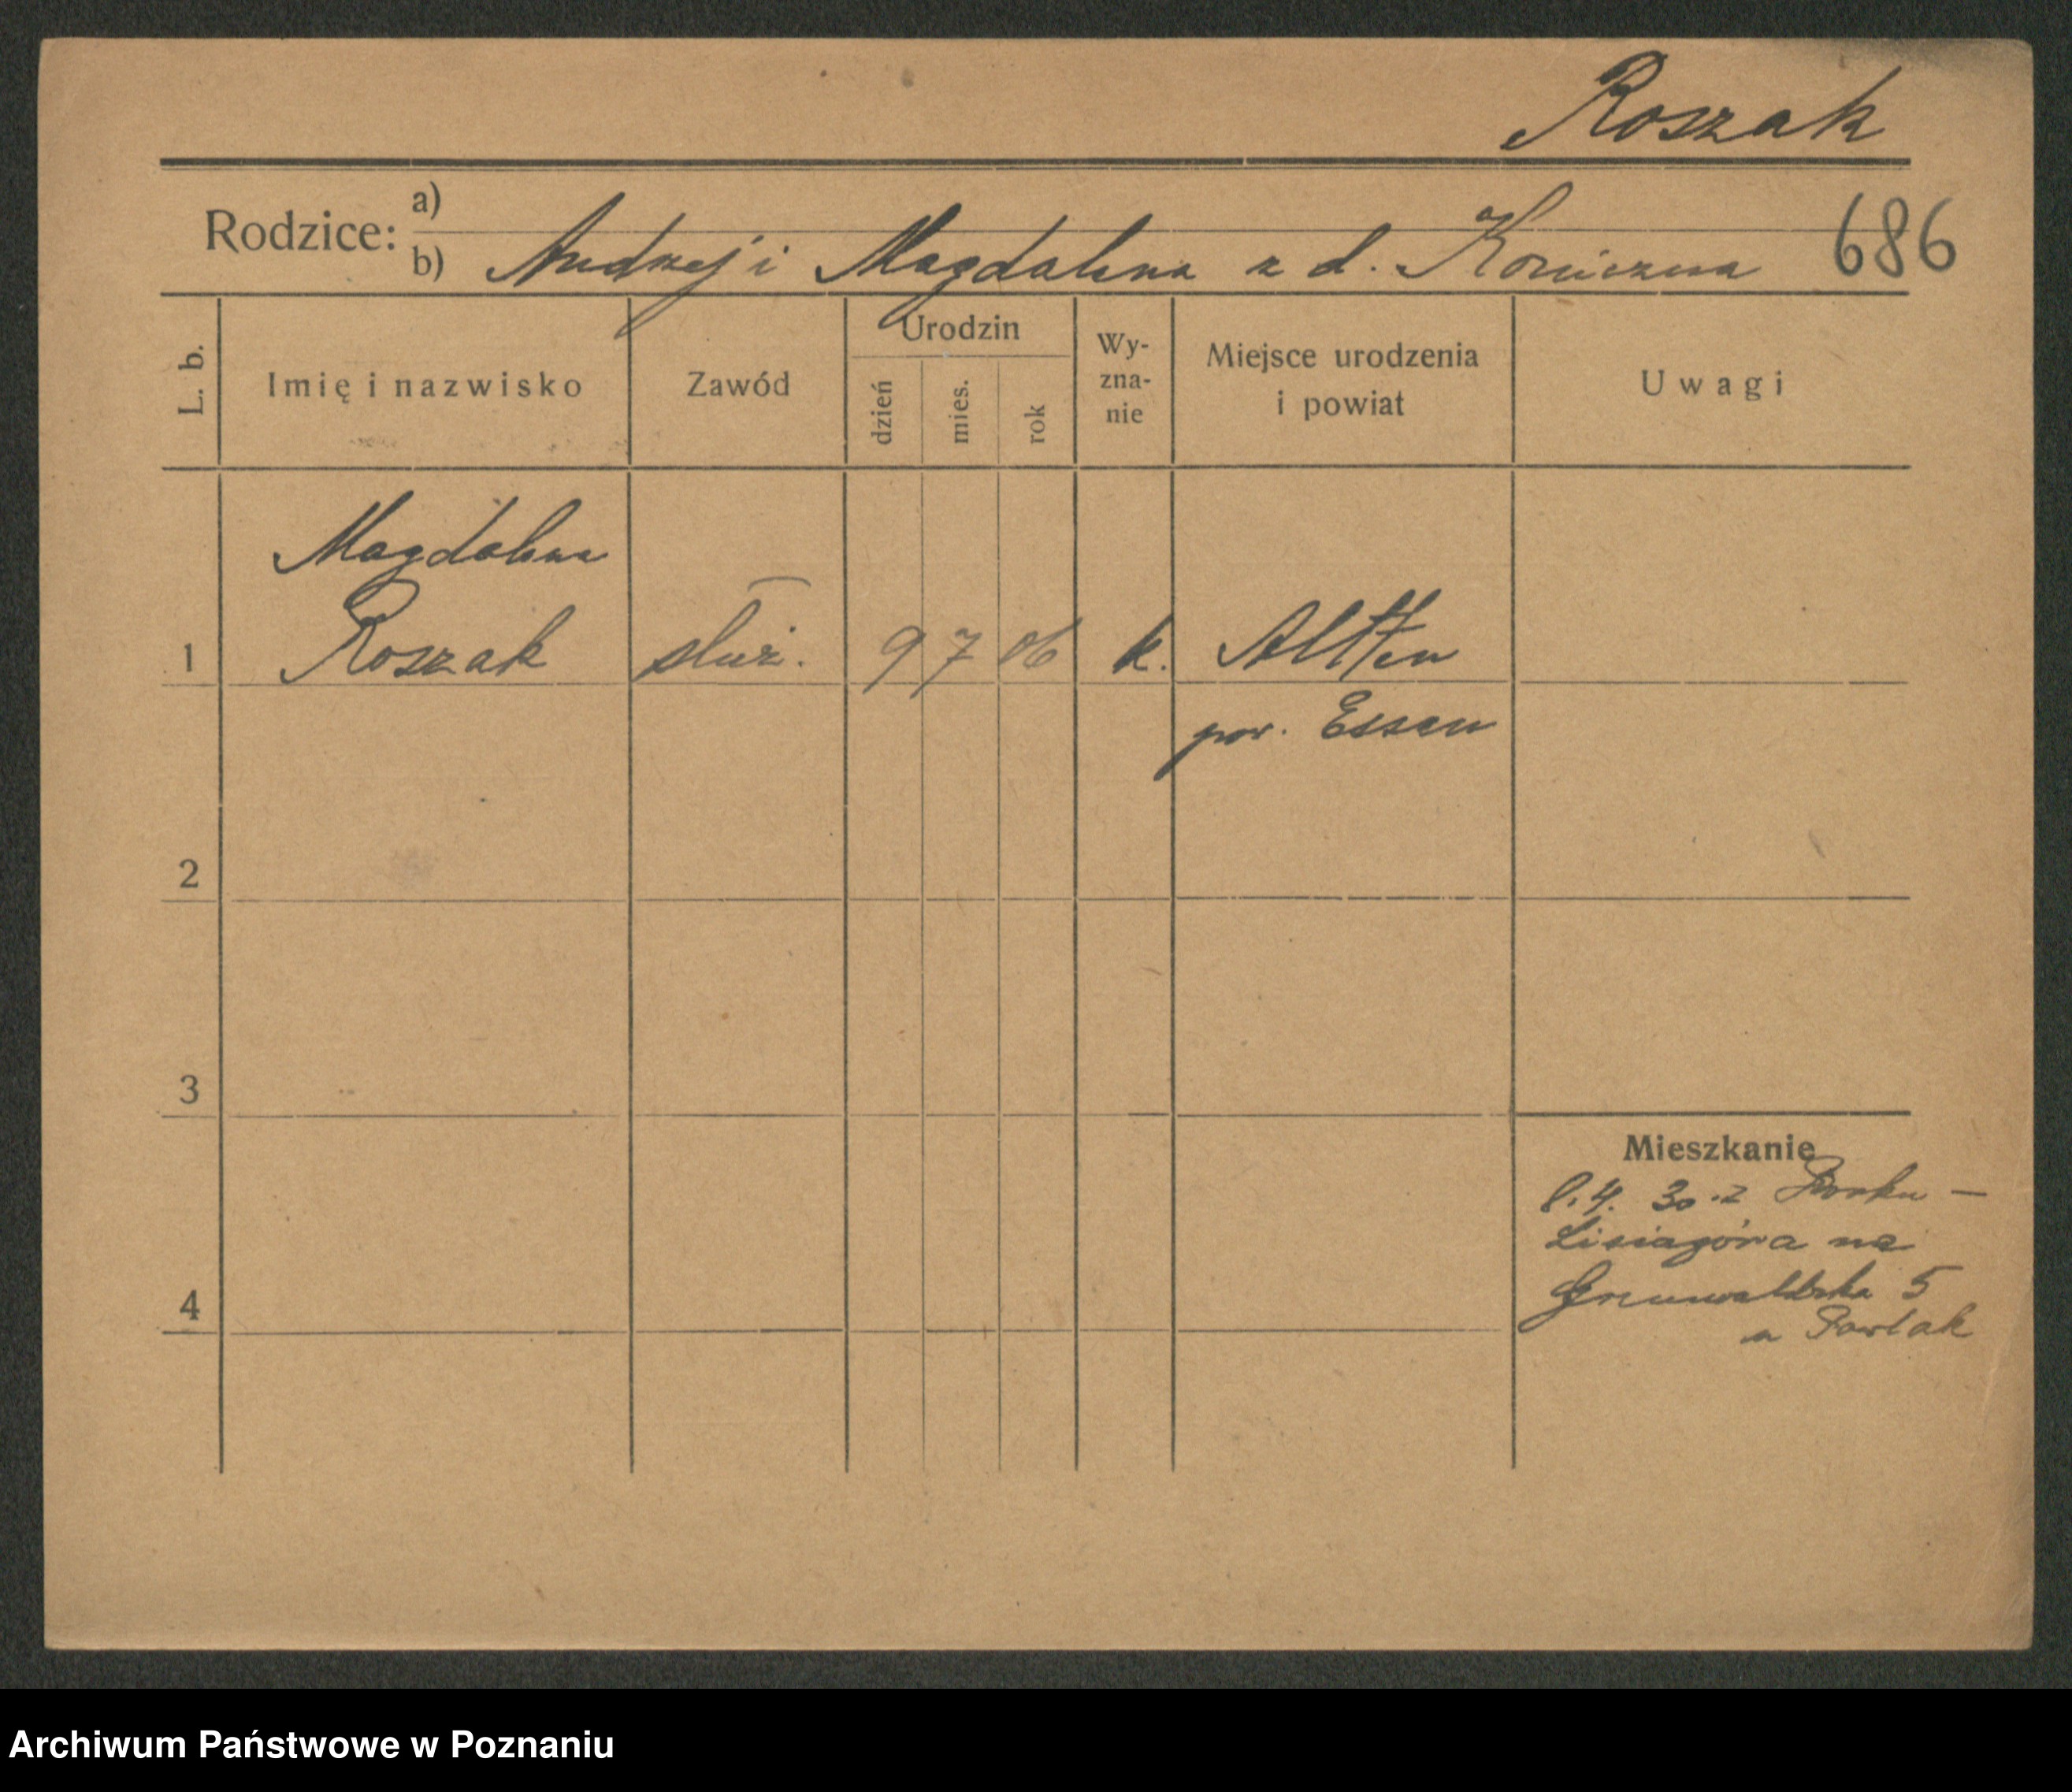 Roszak
Rodzice: a)
b) Andrzej i Magdalena z d. Konieczna 686
L. b. Imię i nazwisko Zawód Urodzin dzień mies. rok Wy-zna-nie Miejsce urodzenia i powiat Uwagi
Magdalena
1 Roszak służ. 9 7 06 k. Altten
pow. Essen
2
3
Mieszkanie
8.4. 30. z Borku —
Lisiagóra na
4 Grunwaldzka 5
u Pawlak
Archiwum Państwowe w Poznaniu